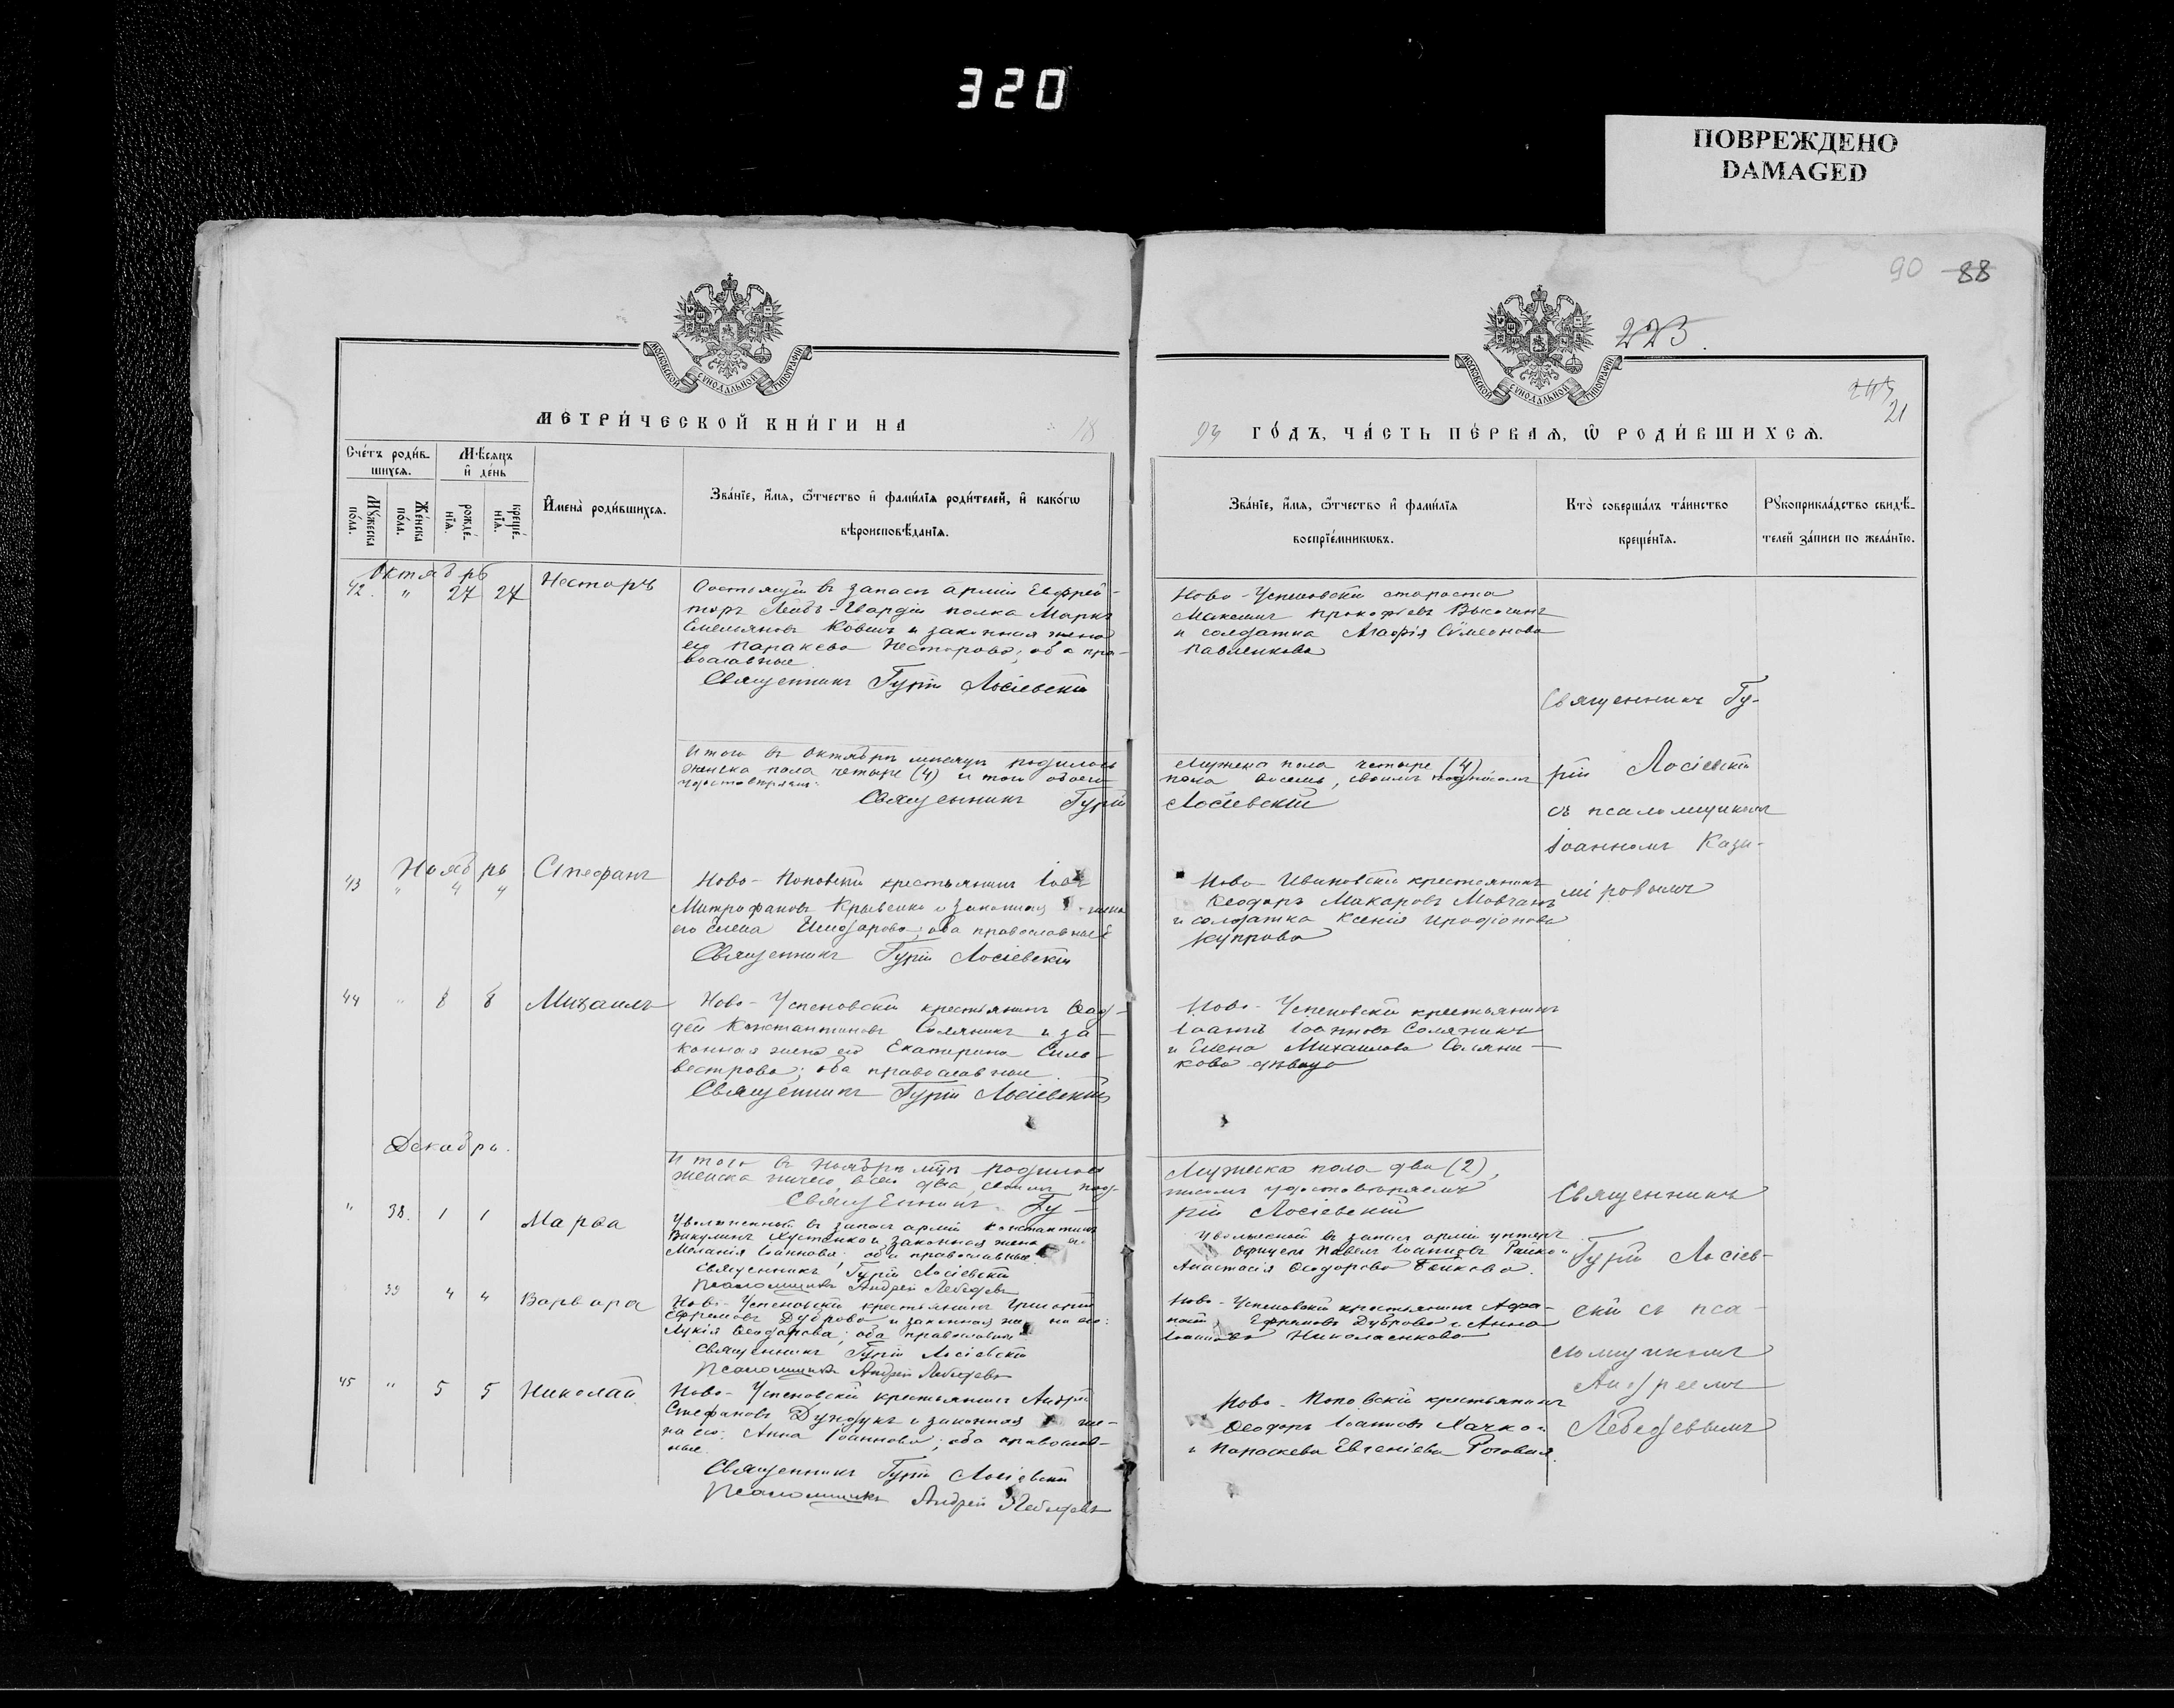 320
ПОВРЕЖДЕНО
DAMAGED
90 88
223.
21
МОСКОВСКОЙ СѴНОДАЛЬНОЙ ТИПОГРАФІИ
МОСКОВСКОЙ СѴНОДАЛЬНОЙ ТИПОГРАФІИ
МЕТРИ́ЧЕСКОЙ КНИ́ГИ НА 18
93 ГО́ДЪ, ЧА́СТЬ ПЕ́РВАѦ, Ѡ РОДИ́ВШИХСѦ.
Сче́тъ роди́в-
шихсѧ.
Мѣ́сѧцъ
и҆ де́нь
Мꙋ́жеска
по́ла.
Же́нска
по́ла.
рожде́-
нїѧ.
креще́-
нїѧ.
И҆мена̀ роди́вшихсѧ.
Зва́нїе, и҆́мѧ, ѻ҆́тчество и҆ фами́лїѧ роди́телей, и҆ како́гѡ
вѣроисповѣ́данїѧ.
Зва́нїе, и҆́мѧ, ѻ҆́тчество и҆ фами́лїѧ
воспрїе́мникѡвъ.
Кто̀ соверша́лъ та́инство
креще́нїѧ.
Рꙋкоприкла́дство свидѣ́-
телей за́писи по жела́нїю.
Октябрь
42. " 27 27 Несторъ
Состоящій въ запасѣ арміи Ефрей-
торъ Лейбъ-Гвардіи полка Маркъ
Емельяновъ Ковишъ и законная жена
его Параксева Несторова; оба пра-
вославные
Священникъ Гурій Лосіевскій
Ново-Успеновскій староста
Максимъ Прокофьевъ Высочинъ
и солдатка Агафія Сѵмеонова
Павленкова
Священникъ Гу-
рій Лосіевскій
съ псаломщикомъ
Іоанномъ Кази-
міровымъ
Итого въ Октябрѣ мѣсяцѣ родилось
женска пола четыре (4) и того обоего
Священникъ Гурій
Мужеска пола четыре (4)
пола восемь, своимъ подписомъ
Лосіевскій
Ноябрь
43 " 4 4 Стефанъ
Ново-Поповскій крестьянинъ
Митрофановъ Крывенко и законная жена
его Елена Ѳеодорова; оба православные
Священникъ Гурій Лосіевскій
Ново-Ивановскій крестьянинъ
Ѳеодоръ Макаровъ Мовчанъ
и солдатка Ксенія Иродіонова
Купрова
44 " 8 8 Михаилъ
Ново-Успеновскій крестьянинъ Ѳад-
дей Константиновъ Соляникъ и за-
конная жена его Екатерина Силь-
вестрова; оба православные
Священникъ Гурій Лосіевскій
Ново-Успеновскій крестьянинъ
Іоаннъ Іоанновъ Соляникъ
и Елена Михаилова Соляни-
кова дѣвица
Декабрь.
Итого въ Ноябрѣ мѣсяцѣ родилось
женска ничего, всего два, своимъ под-
Священникъ Гу-
Мужеска пола два (2),
писомъ удостовѣряемъ
рій Лосіевскій
" 38. 1 1 Марѳа
Уволенный въ запасъ арміи Константинъ
Викулинъ Хустенко и законная жена его
Меланія Іоаннова; оба православные
Священникъ Гурій Лосіевскій
Псаломщикъ Андрей Лебедевъ
Уволенный въ запасъ арміи унтеръ
Офицеръ Павелъ Іоанновъ Райко и
Анастасія Ѳеодорова Бойкова.
Священникъ
Гурій Лосіев-
скій съ пса-
ломщикомъ
Андреемъ
Лебедевымъ
39 4 4 Варвара
Ново-Успеновскій крестьянинъ Григорій
Ефремовъ Дуброва и законная жена его:
Лукія Ѳеодорова; оба православные
Священникъ Гурій Лосіевскій
Псаломщикъ Андрей Лебедевъ
Ново-Успеновскій крестьянинъ Афа-
насій Ефремовъ Дуброва и Анна
Іоаннова Николаенкова
45 " 5 5 Николай
Ново-Успеновскій крестьянинъ Андрей
Стефановъ Дундукъ и законная же-
на его: Анна Іоаннова; оба православ-
ные.
Священникъ Гурій Лосіевскій
Псаломщикъ Андрей Лебедевъ
Ново-Поповскій крестьянинъ
Ѳеодоръ Іоанновъ Хачко
и Параскева Евгеніева Роговая.